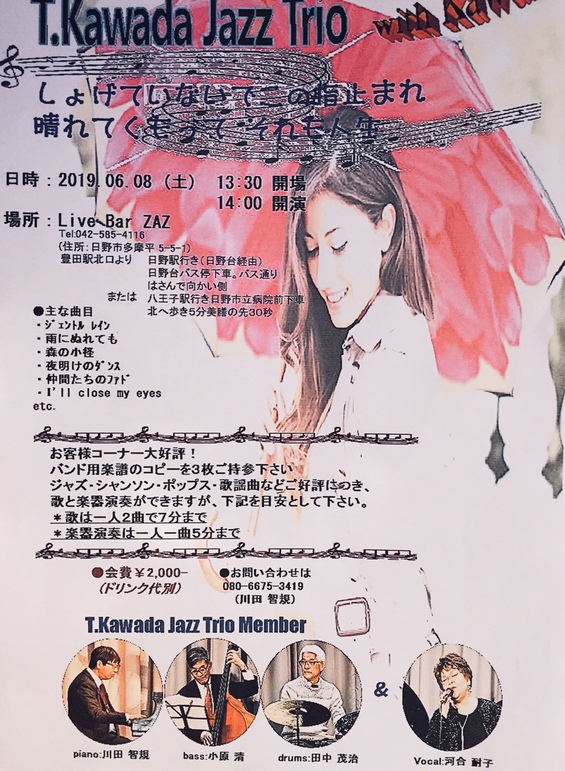 T.Kawada Jazz Trio
with
しょげていないでこの指止まれ
晴れてくもってそれも人生
日時：2019.06.08（土） 13:30 開場
14:00 開演
場所：Live Bar ZAZ
Tel:042-585-4116
(住所:日野市多摩平 5-5-1)
豊田駅北口より 日野駅行き(日野台経由)
日野台バス停下車。バス通り
はさんで向かい側
または 八王子駅行き日野市立病院前下車
北へ歩き5分美膳の先30秒
●主な曲目
・ジェントル レイン
・雨にぬれても
・森の小径
・夜明けのダンス
・仲間たちのファド
・I'll close my eyes
etc.
お客様コーナー大好評！
バンド用楽譜のコピーを3枚ご持参下さい
ジャズ・シャンソン・ポップス・歌謡曲などご好評につき、
歌と楽器演奏ができますが、下記を目安として下さい。
＊歌は一人2曲で7分まで
＊楽器演奏は一人一曲5分まで
●会費￥2,000-
(ドリンク代別)
●お問い合わせは
080-6675-3419
(川田 智規)
T.Kawada Jazz Trio Member
piano:川田 智規
bass:小原 清
drums:田中 茂治
&
Vocal:河合 耐子